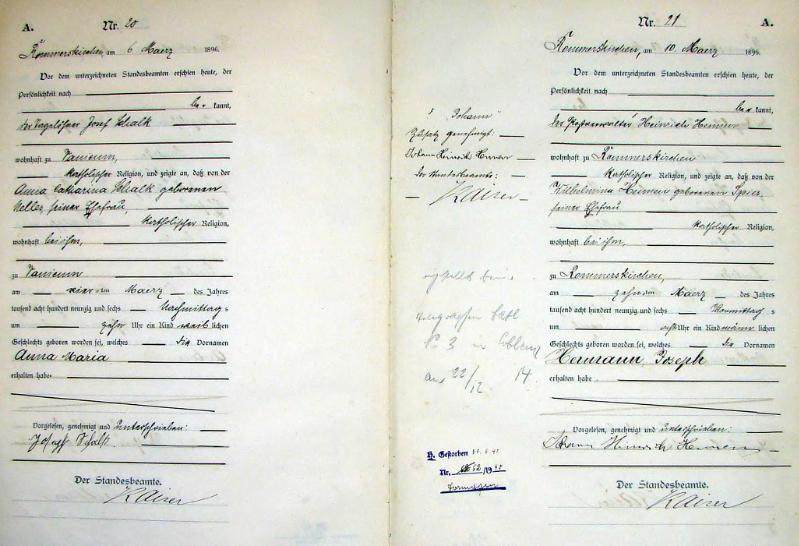 A.
Nr. 20
Rommerskirchen, am 6 Maerz 1896.
Vor dem unterzeichneten Standesbeamten erschien heute, der
Persönlichkeit nach
be kannt,
der Tagelöhner Josef Schalk
wohnhaft zu Vanicum,
katholischer Religion, und zeigte an, daß von der
Anna Catharina Schalk geborenen
Keller seiner Ehefrau,
katholischer Religion,
wohnhaft bei ihm,
zu Vanicum
am vierten Maerz des Jahres
tausend acht hundert neunzig und sechs Nachmittag s
um zehn Uhr ein Kind weib lichen
Geschlechts geboren worden sei, welches die Vornamen
Anna Maria
erhalten habe
Vorgelesen, genehmigt und unterschrieben:
Joseph Schalk
Der Standesbeamte.
Kaiser
Nr. 21
A.
Rommerskirchen, am 10. Maerz 1896.
Vor dem unterzeichneten Standesbeamten erschien heute, der
Persönlichkeit nach
be kannt,
der Postverwalter Heinrich
wohnhaft zu Rommerskirchen
katholischer Religion, und zeigte an, daß von der
Wilhelmina geborenen
seiner Ehefrau
katholischer Religion,
wohnhaft bei ihm,
zu Rommerskirchen,
am zehnten Maerz des Jahres
tausend acht hundert neunzig und sechs Vormittag s
um Uhr ein Kind männ lichen
Geschlechts geboren worden sei, welches die Vornamen
Hermann Joseph
erhalten habe
Vorgelesen, genehmigt und unterschrieben:
Johann Heinrich
Der Standesbeamte.
Kaiser
"Johann"
Zusatz genehmigt.
Johann Heinrich
Der Standesbeamte:
Kaiser
No 3 in Coblenz
am 22/12 14.
H. Gestorben
Nr.